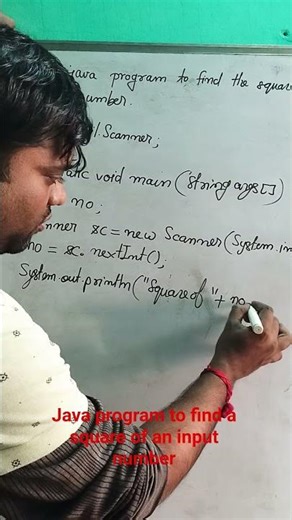 java program to find the square
number.
l.Scanner;
void main(String args[])
no;
anner sc=new Scanner(System.in
no = sc.nextInt();
System.out.println("Square of "+ no
Java program to find a
square of an input
number